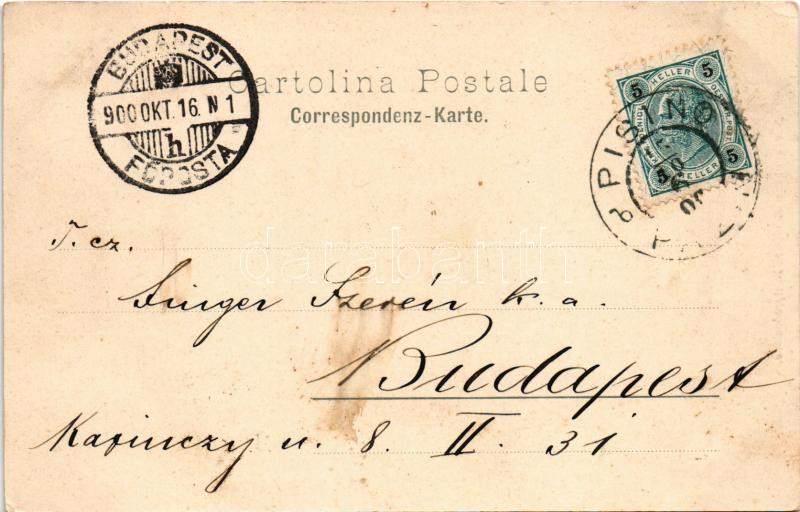 Cartolina Postale
Correspondenz-Karte.
BUDAPEST
900 OKT. 16. N 1
h
FŐPOSTA
5 HELLER 5
5 HELLER 5
PISINO
T. cz.
darabanth
Singer Szerén k. a.
Budapest
Kazinczy u. 8. II. 31